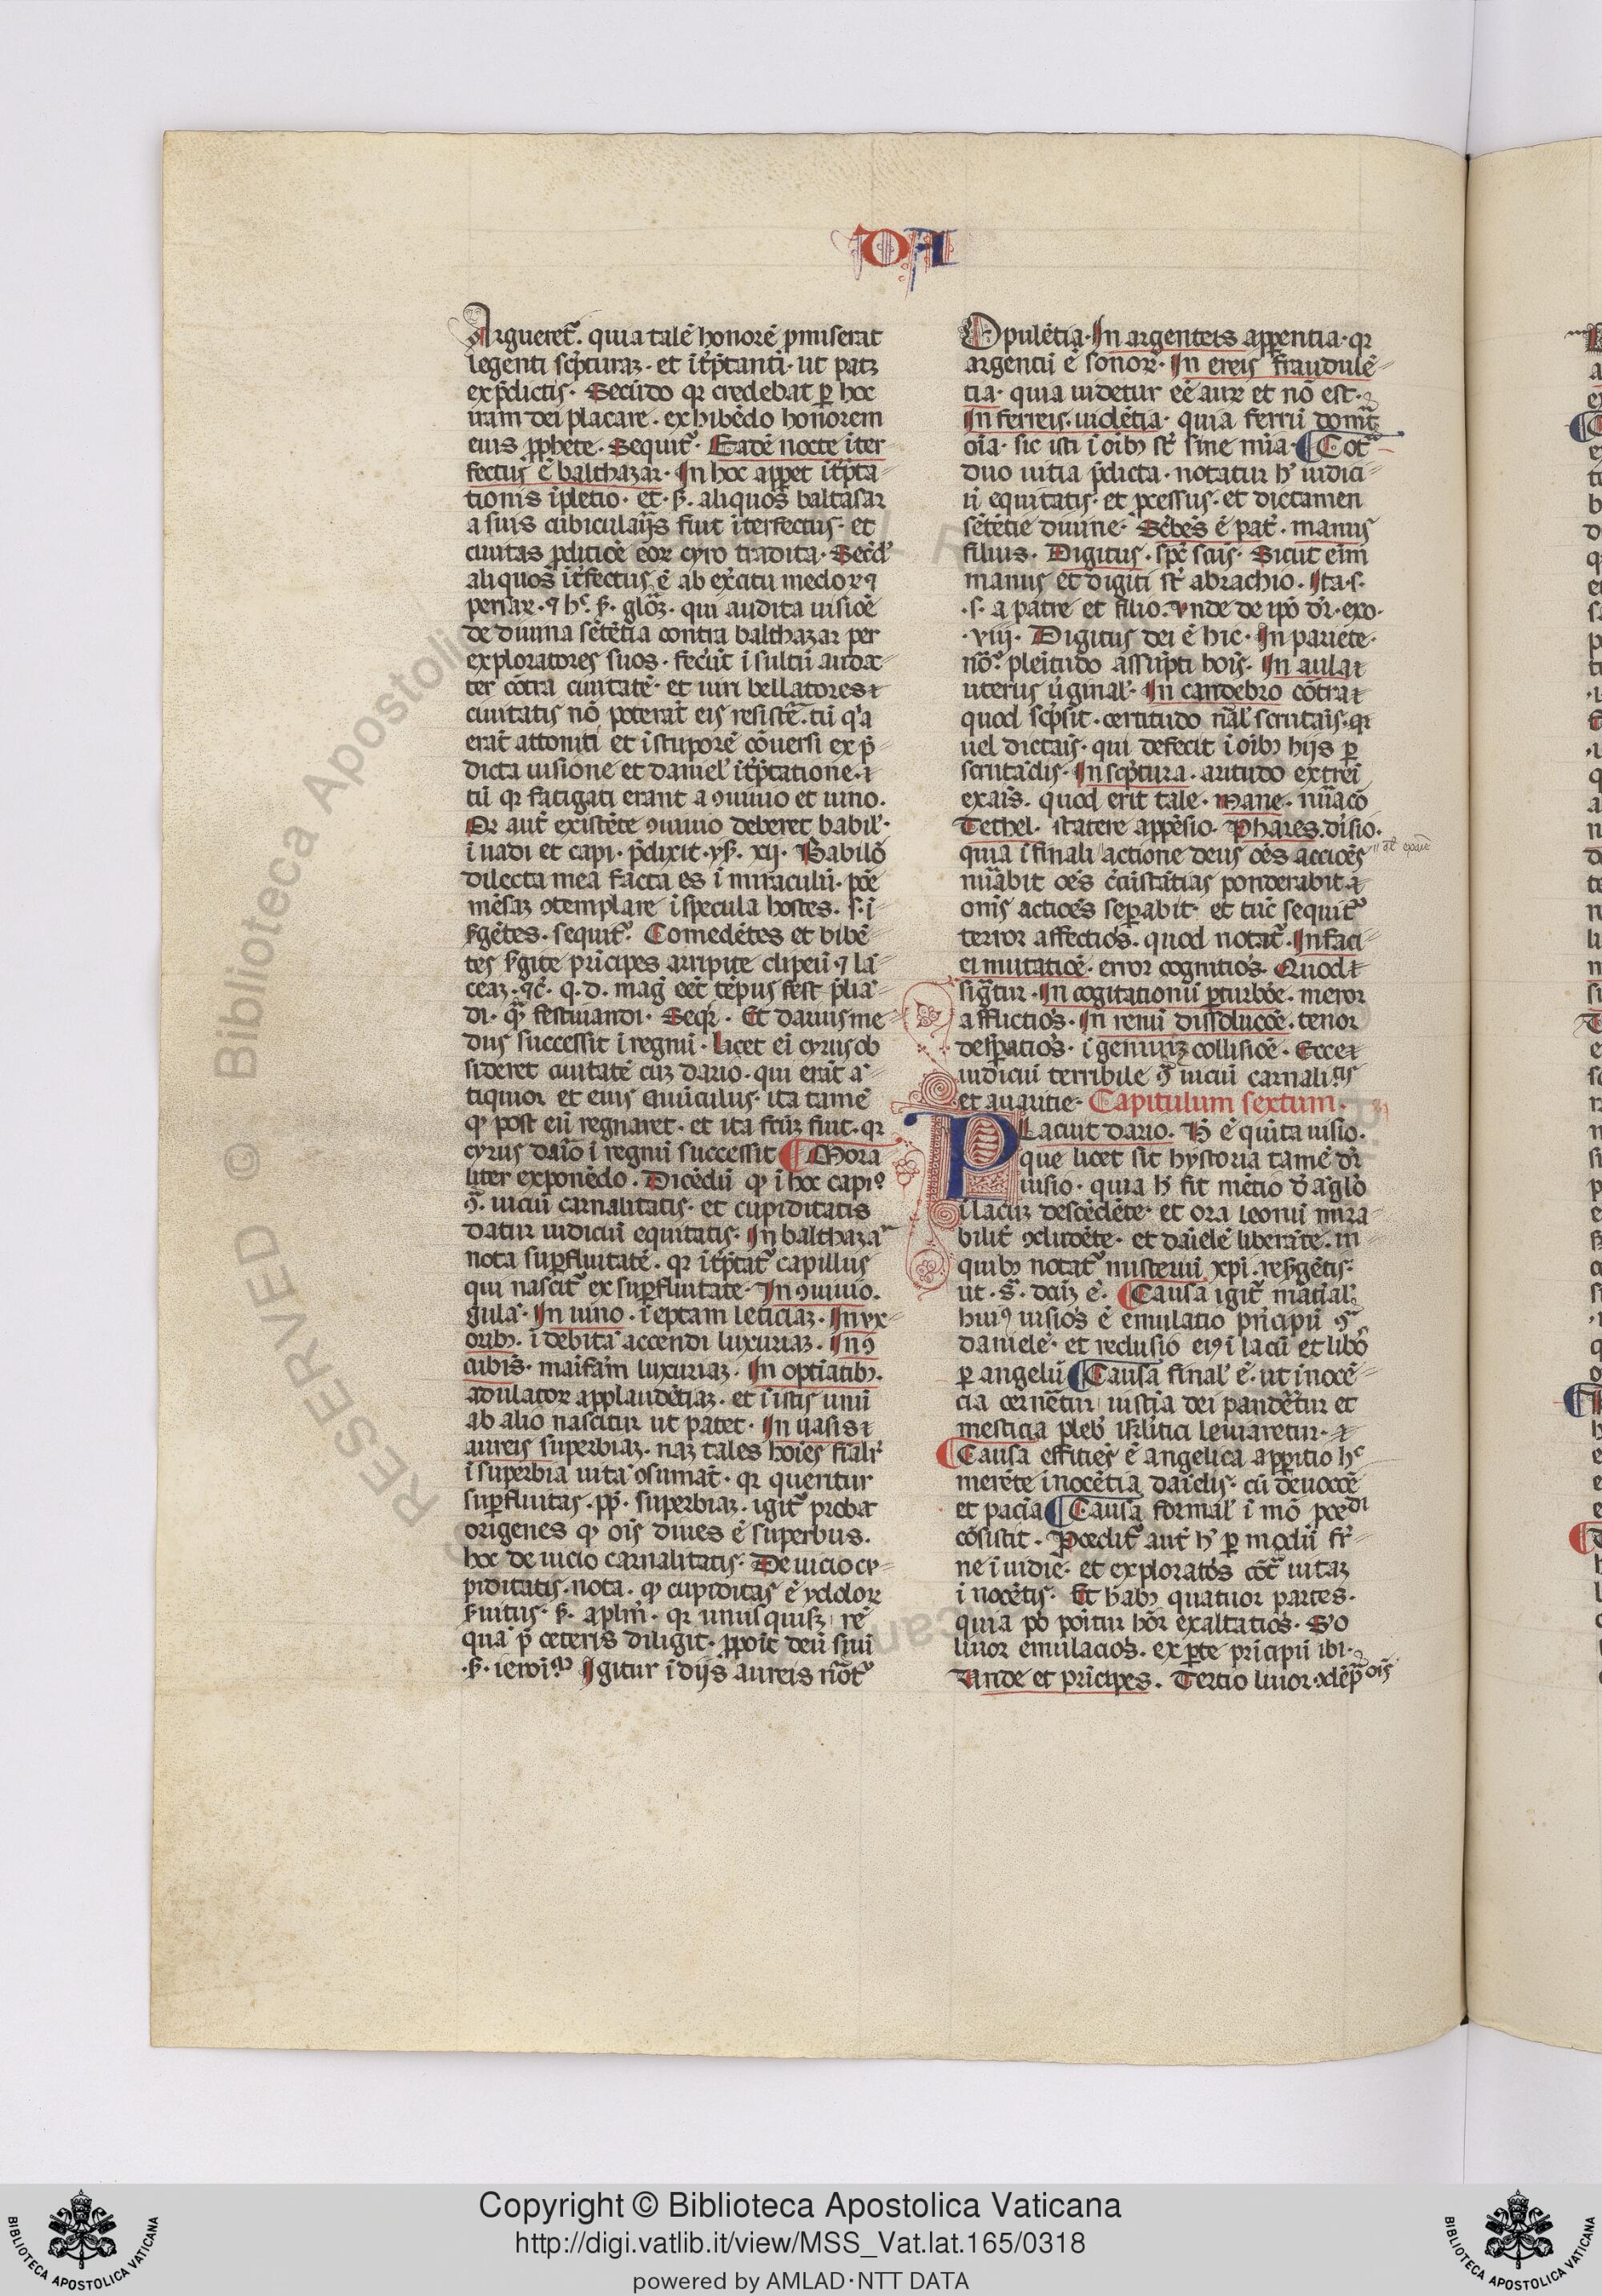 DA
Arguetet̃. quia talē honorē ꝓmiserat
legenti sc̃pturaꝫ. et it̃p̃tanti. ut patꝫ
ex p̃dictis. Secūdo qꝛ credebat ꝑ hoc
iram dei placare. exhibēdo honorem
eius ꝓphete. Sequit̃. Eadē nocte īter
fectus ē balthazar. In hoc appet it̃p̃ta-
tionis īpletio. et. ẜ. aliquos baltasar
a suis cubicularijs fuit īterfectus. et
ciuitas ꝓditiōe eoꝝ cyro tradita. Secd̃
aliquos īt̃fectus ē ab ex̃citu medoꝝ ⁊
persaꝝ. ⁊ hͨ. ẜ. glõꝫ. qui audita uisiōe
de diuina sētētia contra balthazar per
exploratores suos. fecũt īsultū audac-
ter cōtra ciuitatē. et uiri bellatores
ciuitatis nō poterāt eis resistẽ. tū q'a
erāt attoniti et ī stuporē cōuersi ex p̃
dicta uisione et daniel' it̃p̃tatione.
tū qꝛ fatigati erant a ꝯuiuio et uino.
Qꝛ aut̃ existēte ꝯuiuio deberet babil'.
ī uadi et capi. p̃dixit. yẜ. xxj. Babilō
dilecta mea facta es ī miraculū. pōe
mēsaꝫ ꝯtemplare ī specula hostes. s. ī
ẜgētes. sequit̃. Comedētes et bibē
tes ẜgite prīcipes arripite clipeū ⁊ lā
ceaꝫ. ⁊c̃. q. d. mag̃ eēt tēpus fest̃ p̃lia-
di. ꝙ̃ festiuandi. Seqr̃. Et darius me
dus successit ī regnū. Licet ei cyrus ob
sideret ciuitatē cuꝫ dario. qui erāt a-
tiquior et eius auūculus. ita tamē
ꝙ post eū regnaret. et ita fcūꝫ fuit. qꝛ
cyrus dario ī regnū successit ¶ Mora
liter exponēdo. Dicēdū ꝙ ī hoc capi°
ꝯ̃. uiciū carnalitatis. et cupiditatis
datur iudiciū equitatis. In balthaza
nota suꝑfluitatē. qꝛ it̃p̃tat̃ capillus
qui nascit̃ ex suꝑfluitate. In ꝯuiuio.
gula. In uino. īeptam leticiaꝫ. In vx-
oribꝫ. ī debita accendi luxuriaꝫ. In ꝯ
cibīs. manifām luxuriaꝫ. In optīatibꝫ.
adulatoꝝ applaudētiaꝫ. et ī istis unū
ab alio nascitur ut patet. In uasis
aureis superbiaꝫ. naꝫ tales hoīes fīalr̃
ī superbia uitā ꝯsumāt. qꝛ queritur
suꝑfluitas. ꝓp̃. superbiaꝫ. igit̃ probat
origenes ꝙ oīs diues ē superbus.
hoc de uicio carnalitatis. De uicio cu-
piditatis. nota. ꝙ cupiditas ē ydoloꝝ
ẜuitus. ẜ. aplm̃. qꝛ unusquisqꝫ rē
quā p̃ ceteris diligit. ꝓpōit deū suū
.ẜ. ieroī. Igitur ī dijs aureis nōt̃
Opulētia. In argenteis appentia. qꝛ
argentū ē sonoꝝ. In ereis fraudulē-
tia. quia uidetur eē auꝝ et nō est.
In ferreis. uiolētia. quia ferrū domāt
oīa. sic isti ī oibꝫ st̃ sine mīa. ¶ Cot̃
duo uitia p̃dicta. notatur h' iudici-
ū equitatis. et ꝓcessus. et dictamen
sētētie diuine. Scbēs ē pat̃. manus
filius. Digitus. spc̃ scūs. Sicut eīm
manus et digiti st̃ abrachio. Ita. s.
.s. a patre et filio. vnde de ip̄o d̄r. exo.
.viij. Digitus dei ē hic. In pariete.
nō. pleītudo assūpti hoīs. In aula
uterus ũginal'. In candebro cōtra
quod sc̃psit. certitudo nal' scrutaīs. qꝛ
uel dictaīs. qui defecit ī oibꝫ hijs ꝑ
scrutādis. In sc̃ptura. aritudo extrēi
exaīs. quod erit tale. Mane. nūacō
Techel. statere appēsio. Phares. dīsio.
quia ī finali actione deus oēs accioēs
nūabit oēs c̃cūstātias ponderabit
onīs actiōes seꝑabit. et tūc sequit̃
terror affectiōs. quod notat̃. In faci-
ei mutatiōe. error cognitiōs. Quod
sig̃tur. In cogitationū ꝑturbōe. meror
afflictiōs. In renū dissolucōe. tenor
desꝑatiōs. ī genuuꝫ collisiōe. Ecce
iudiciū terribile ꝯ̃ uiciū carnalitis
et auaritie. Capitulum sextum.
Placuit dario. H̄ ē quīta uisio.
que licet sit hystoria tamē d̄r
uisio. quia h' fit mētio d' āglo
ī lacuꝫ descēdēte. et ora leonū mira-
bilit̃ ꝯcludēte. et daīelē liberāte. in
quibꝫ notat̃ misteriū xp̄i resẜgētis.
ut. s̃. dc̄uꝫ ē. ¶ Causa igit̃ mat̃ial'
huiꝰ uisiōs ē emulatio prīcipū ꝯ̃
danielē. et reclusio eiꝰ ī lacū et libō
ꝑ angelū ¶ Causa final' ē. ut īnocē-
cia cernet̃tur iusticia dei pandet̃tur et
mesticia pleb' isrl'itici leuiaretur.
¶ Causa efficiēs ē angelica apparitio hͨ
merēte īnocētia daīelis. cū deuocōe
et pacīa ¶ Causa formal' ī mō ꝓcedi
cōsistit. Ꝓcedit̃ aut̃ h' ꝑ modū fr̃-
ne īiudie. et exploratōs cōt̃ uitaꝫ
ī nocētis. Et habꝫ quatuor partes.
quia pō poītur hōr exaltatiōs. S'o
liuor emulaciōs. ex ꝑte prīcipū ibi.
Unde et prīcipes. Tertio liuor ꝯdēp̃oīs
RESERVED © Biblioteca Apostolica
Copyright © Biblioteca Apostolica Vaticana
http://digi.vatlib.it/view/MSS_Vat.lat.165/0318
powered by AMLAD·NTT DATA
BIBLIOTECA APOSTOLICA VATICANA
BIBLIOTECA APOSTOLICA VATICANA